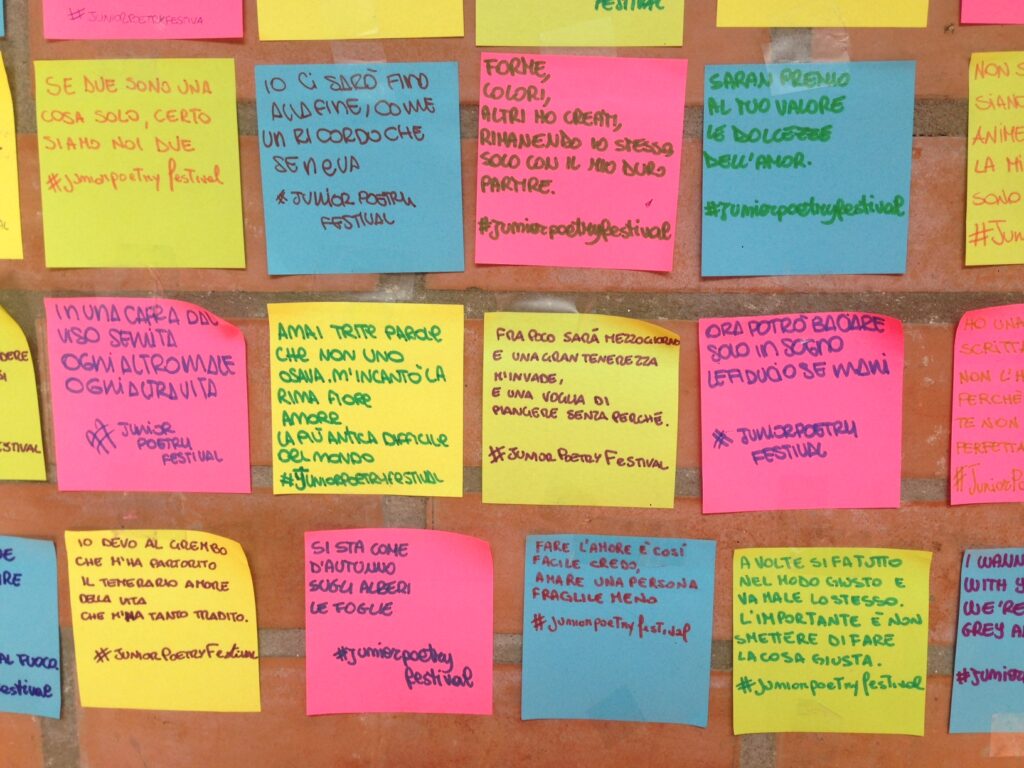 #JUNIORPOETRYFESTIVA
FESTIVAL
SE DUE SONO UNA
COSA SOLO, CERTO
SIAMO NOI DUE
#juniorpoetry festival
IO CI SARÒ FINO
ALLA FINE, COME
UN RICORDO CHE
SE NE VA
#JUNIOR POETRY
FESTIVAL
FORME,
COLORI,
ALTRI HO CREATI,
RIMANENDO IO STESSO,
SOLO CON IL MIO DURO
PARTIRE.
#juniorpoetryfestival
SARAN PREMIO
AL TUO VALORE
LE DOLCEZZE
DELL'AMOR.
#juniorpoetryfestival
NON S
SIANO
ANIME
LA MI
SONO
#Jun
DERE
SI
ESTIVAL
IN UNA CAFFA DAL
USO SEMITA
OGNI ALTRO MALE
OGNI ALTRA VITA
# JUNIOR
POETRY
FESTIVAL
AMAI TRITE PAROLE
CHE NON UNO
OSAVA. M'INCANTÒ LA
RIMA FIORE
AMORE
LA PIÙ ANTICA DIFFICILE
DEL MONDO
#JUNIORPOETRYFESTIVAL
FRA POCO SARÀ MEZZOGIORNO
E UNA GRAN TENEREZZA
M'INVADE,
E UNA VOGLIA DI
PIANGERE SENZA PERCHÉ.
#JUNIORPOETRYFESTIVAL
ORA POTRÒ BACIARE
SOLO IN SOGNO
LE FIDUCIOSE MANI
# JUNIORPOETRY
FESTIVAL
HO UNA
SCRITTA
NON L'H
PERCHÈ
TE NON
PERFETTA
#JuniorPo
DE
IRE
AL FUOCO
festival
IO DEVO AL GREMBO
CHE M'HA PARTORITO
IL TEMERARIO AMORE
DELLA VITA
CHE M'HA TANTO TRADITO.
#JUNIORPOETRYFESTIVAL
SI STA COME
D'AUTUNNO
SUGLI ALBERI
LE FOGLIE
#juniorpoetry
festival
FARE L'AMORE È COSÌ
FACILE CREDO,
AMARE UNA PERSONA
FRAGLILE MENO
#juniorpoetryfestival
A VOLTE SI FA TUTTO
NEL MODO GIUSTO E
VA MALE LO STESSO.
L'IMPORTANTE È NON
SMETTERE DI FARE
LA COSA GIUSTA.
#juniorpoetryfestival
I WANN
WITH Y
WE'RE
GREY A
#junior